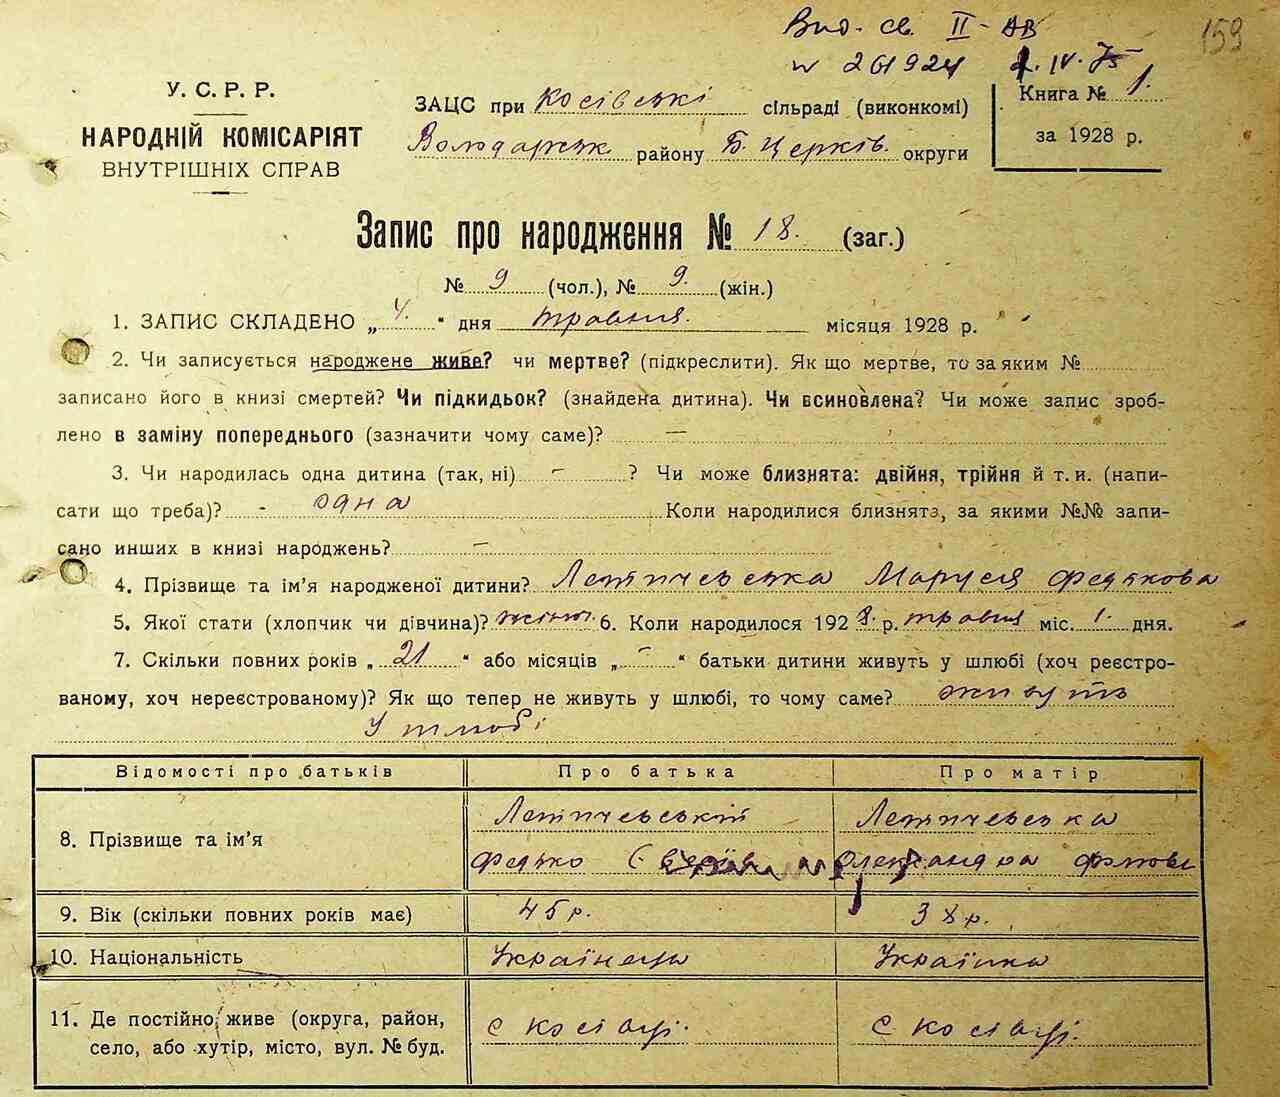 Вид. св. II-АВ
N 261924 1.IV.75
159
У. С. Р. Р.
НАРОДНІЙ КОМІСАРІЯТ
ВНУТРІШНІХ СПРАВ
ЗАЦС при Косівські сільраді (виконкомі)
Володарськ району Б. Церків. округи
Книга № 1.
за 1928 р.
Запис про народження № 18. (заг.)
№ 9 (чол.), № 9. (жін.)
1. ЗАПИС СКЛАДЕНО „4.“ дня травня. місяця 1928 р.
2. Чи записується народжене живе? чи мертве? (підкреслити). Як що мертве, то за яким №
записано його в книзі смертей? Чи підкидьок? (знайдена дитина). Чи всиновлена? Чи може запис зроб-
лено в заміну попереднього (зазначити чому саме)? —
3. Чи народилась одна дитина (так, ні) - ? Чи може близнята: двійня, трійня й т. и. (напи-
сати що треба)? - одна Коли народилися близнята, за якими №№ запи-
сано инших в книзі народжень? —
4. Прізвище та ім'я народженої дитини? Летичевська Маруся Федькова
5. Якої стати (хлопчик чи дівчина)? жіноч. 6. Коли народилося 1928. р. травня міс. 1. дня.
7. Скільки повних років „21“ або місяців „-“ батьки дитини живуть у шлюбі (хоч реєстро-
ваному, хоч нереєстрованому)? Як що тепер не живуть у шлюбі, то чому саме? живуть
у шлюбі
Відомості про батьків Про батька Про матір
8. Прізвище та ім'я Летичевський Летичевська
Федько Олександра
9. Вік (скільки повних років має) 45 р. 38 р.
10. Національність Українець Українка
11. Де постійно живе (округа, район, село, або хутір, місто, вул. № буд. с Косівці. с Косівці.